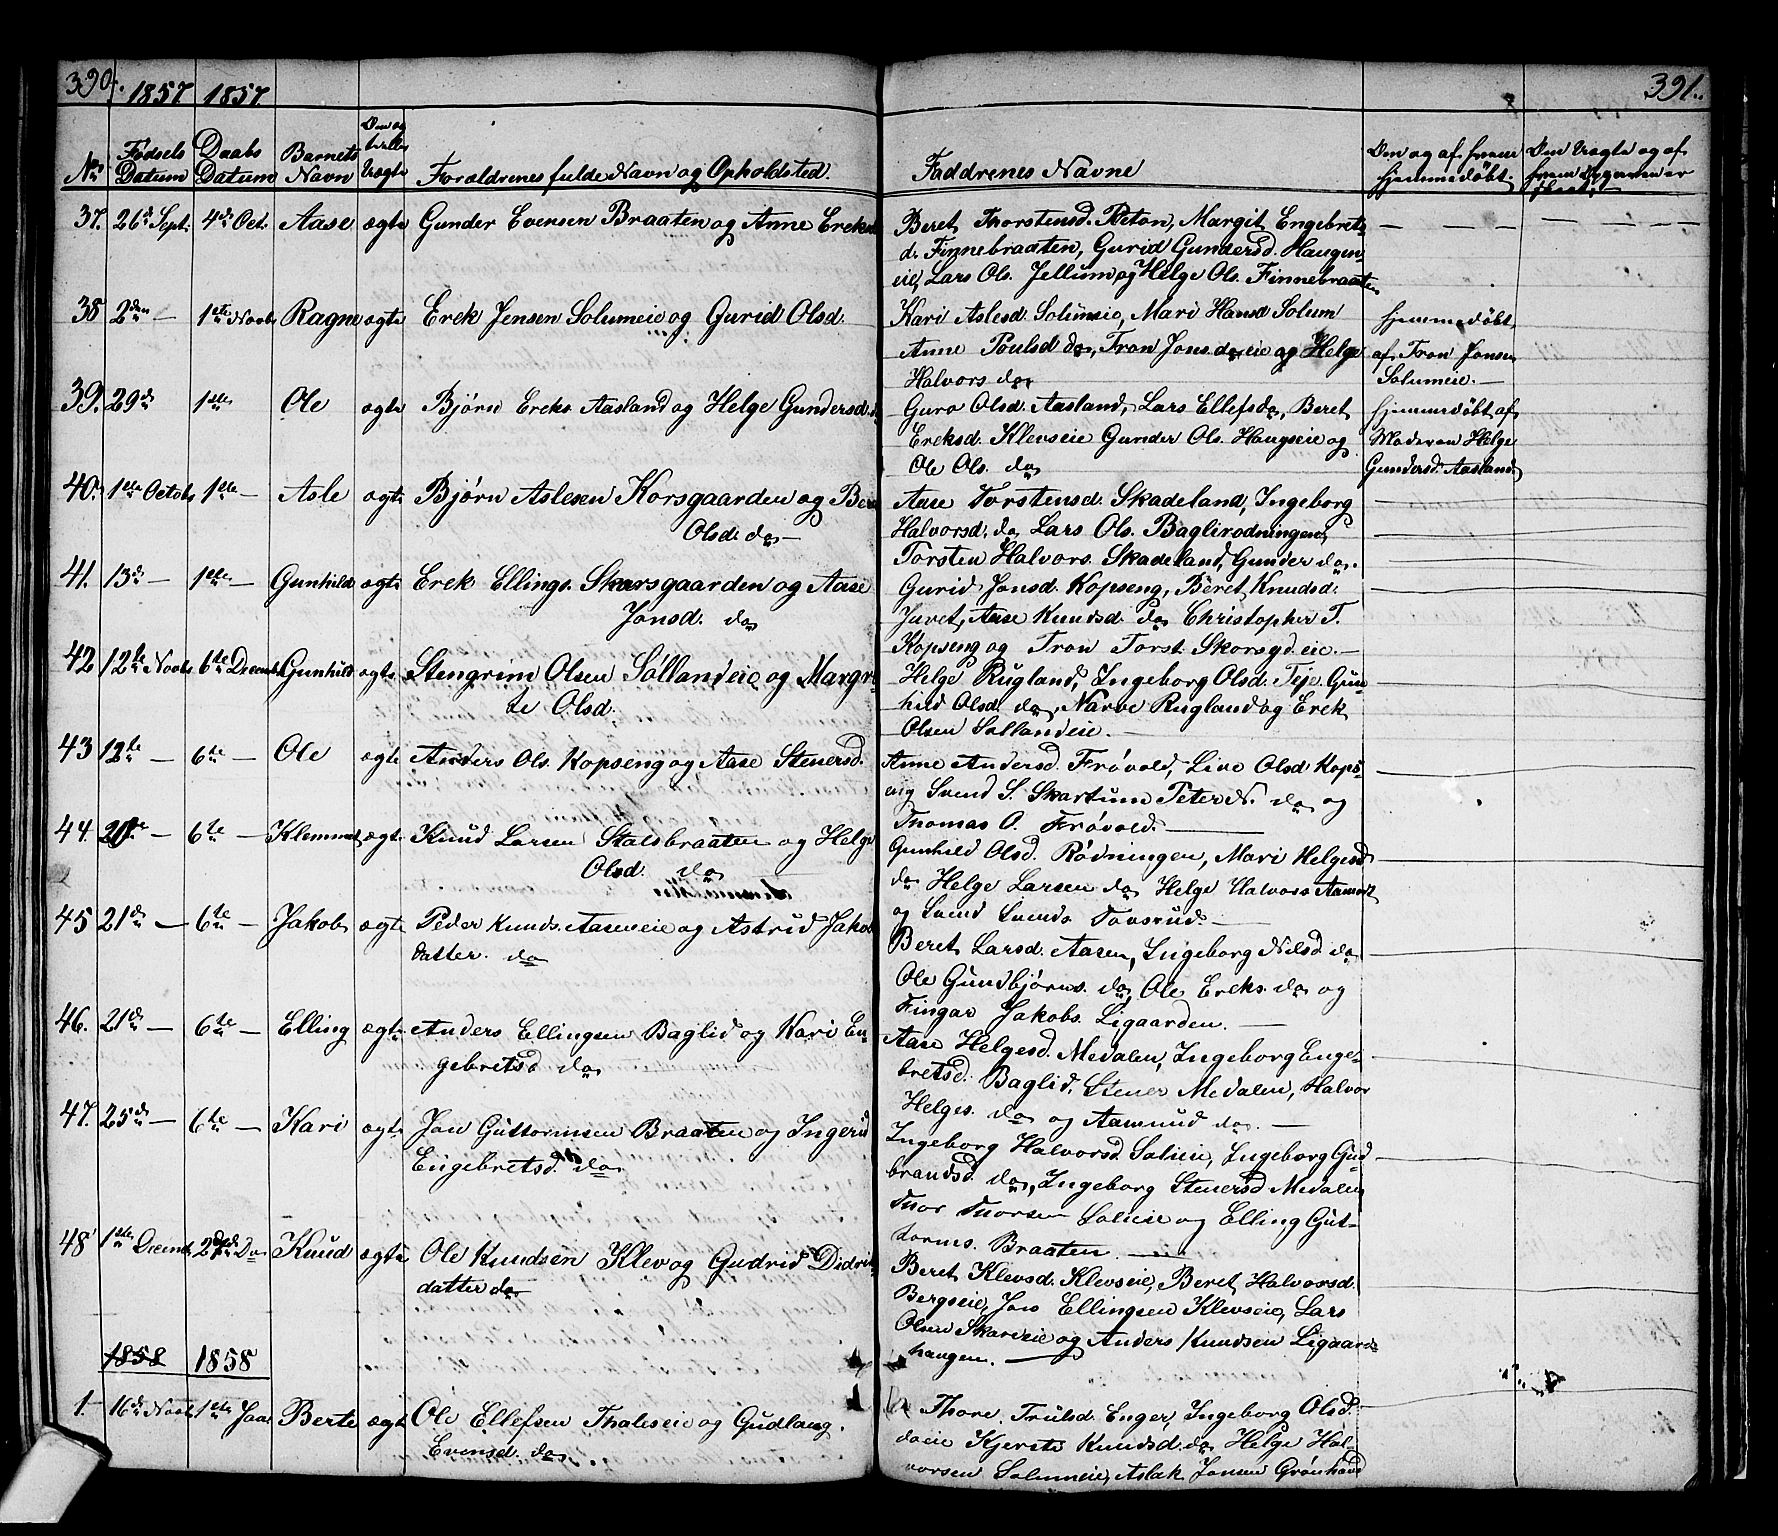 390. 1857 1857
No Fødsels Datum Daabs Datum Barnets Navn Om ægte eller Uægte Forældrenes fulde Navn og Opholdsted.
37. 26de Sept. 4de Oct. Aase ægte Gunder Evensen Braaten og Anne Ereksd
38 2den — 1ste Novbr Ragne ægte Erek Jensen Solumeie og Gurid Olsd.
39. 29de 1ste Ole ægte Bjørn Ereks. Aasland og Helge Gundersd.
40. 1ste Octob. 1ste — Asle ægte Bjørn Aslesen Korsgaarden og Ber
Olsd. do —
41. 13de — 1ste — Gunhild ægte Erek Ellings. Skorsgaarden og Aase
Jonsd. do
42 12te Novbr 6te Decemb. Gunhild ægte Stengrim Olsen Sollandeie og Margre-
te Olsd.
43 12te — 6te — Ole ægte Anders Ols. Kopseng og Aase Stenersd.
44. 20de — 6te — Klemmet ægte Knud Larsen Stalsbraaten og Helge
Olsd. do
45 21de — 6te — Jakob ægte Peder Knuds. Aaseneie og Astrid Jakob
datter. do
46. 21de — 6te — Elling ægte Anders Ellingsen Baglid og Kari En-
gebretsd do
47. 25de — 6te — Kari ægte Jon Guttormsen Braaten og Ingerid
Engebretsd. do
48 1ste Decemb. 2den Do Knud ægte Ole Knudsen Klev og Gudrid Didrik
datter do
1858 1858
1. — 16de Novbr 1ste Jan Berte ægte Ole Ellefsen Thaleseie og Gudlaug
Evensd. do.
391.
Faddrenes Navne Om og af hvem hjemmedøbt. Om Uægte og af hvem
Beret Thorstensd. Pleton, Margit Engebrets
d. Finnebraaten, Gurid Gundersd. Haugen
eie, Lars Ols. Jellum og Helge Ols. Finnebraaten
Kari Aslesd. Solumeie, Mari Hansd Solum hjemmedøbt
Anne Poulsd do, Tron Jons. do eie og Helge af Tron Jonsen
Halvors do Solumeie. —
Guro Olsd. Aasland, Lars Ellefs do, Beret hjemmedøbt af
Ereksd. Klevseie Gunder Ols. Haugseie og Moderen Helge
Ole Ols. do Gundersd. Aasland
Aase Torstensd. Skadeland, Ingeborg
Halvorsd. do Lars Ols. Baglirodningen,
Torsten Halvors. Skadeland, Gunder do.
Gurid Jonsd. Kopseng, Beret Knudsd.
Juvet, Aase Knudsd. do Christopher T.
Kopseng og Tron Torst. Skorsgd.eie. —
Helge Rugland, Ingeborg Olsd. Teje Gun-
hild Olsd. do, Narve Rugland og Erek
Olsen Sollandeie. —
Anne Andersd. Frøvold, Live Olsd Kops-
eng Svend S. Skartum Peter N. do og
Thomas O. Frøvold. —
Gunhild Olsd. Rødningen, Mari Helgesd
do Helge Larsen do Helge Halvors Aamot
og Svend Svends Tovsrud. —
Beret Larsd. Aasen, Ingeborg Nilsd do
Ole Gundbjørns. do, Ole Ereks. do og
Fingar Jakobs. Ligaarden. —
Aase Helgesd. Medalen, Ingeborg Enge-
bretsd. Baglid, Stener Medalen, Halvor
Helges. do og Aamund do. —
Ingeborg Halvorsd. Solieie, Ingeborg Gud-
brandsd. do, Ingeborg Stenersd Medalen
Thor Thorsen Solieie og Elling Gut-
torms. Braaten. —
Beret Klevsd. Klevseie, Beret Halvorsd.
Bergseie, Jon Ellingsen Klevseie, Lars
Olsen Skareseie og Anders Knudsen Ligaard-
haugen. —
Thore Trulsd. Enger, Ingeborg Olsd.
do eie Kjersti Knudsd. do Helge Hal-
vorsen Solumeie, Aslak Jonsen Grønhovd